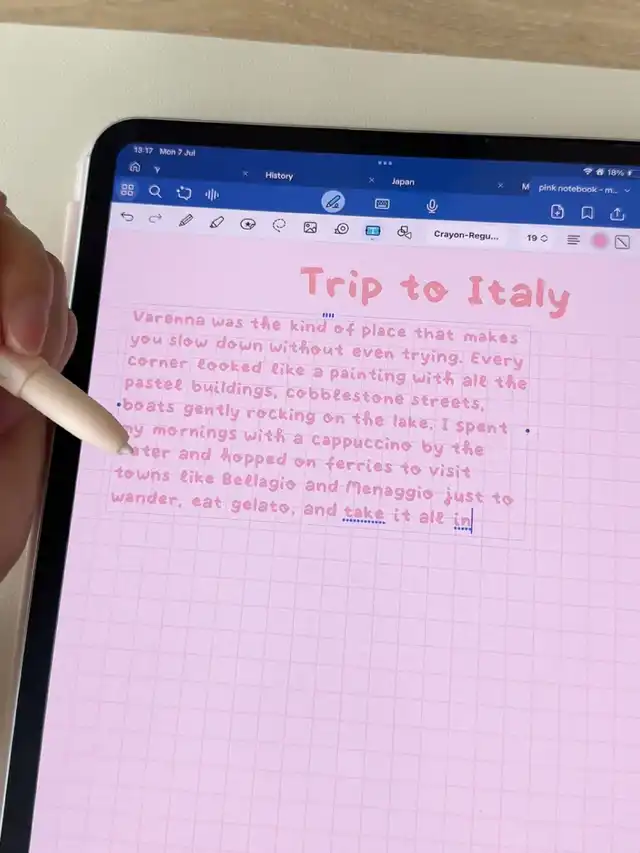 13:17 Mon 7 Jul
18%
History
Japan
M
pink notebook - m...
Crayon-Regu...
19
Trip to Italy
Varenna was the kind of place that makes
you slow down without even trying. Every
corner looked like a painting with all the
pastel buildings, cobblestone streets,
boats gently rocking on the lake. I spent
my mornings with a cappuccino by the
water and hopped on ferries to visit
towns like Bellagio and Menaggio just to
wander, eat gelato, and take it all in